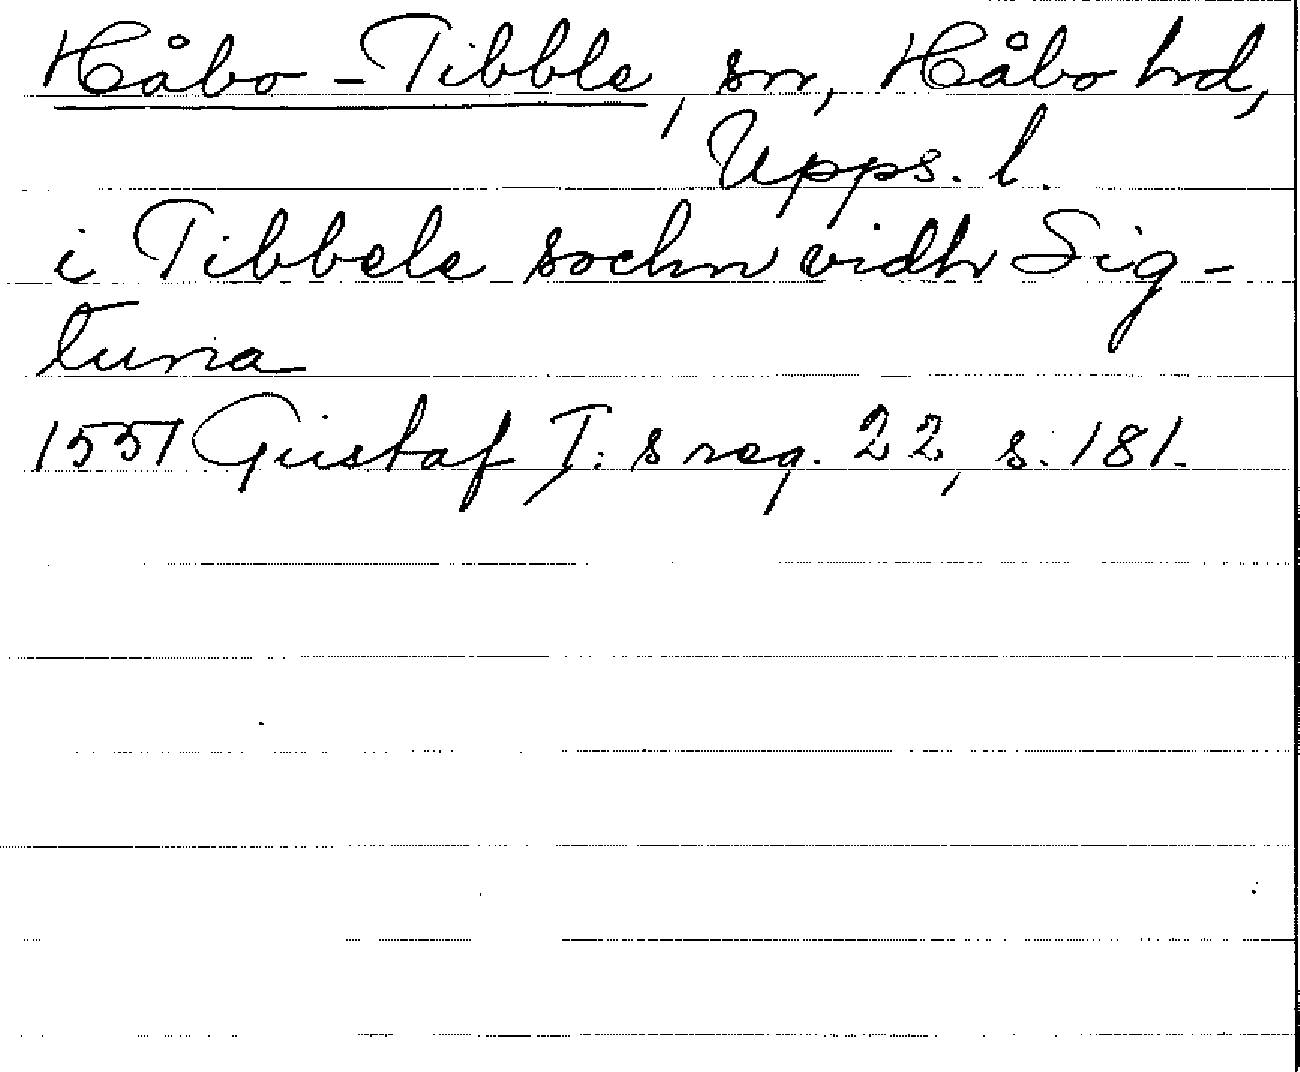 Håbo-Tibble, sn, Håbo hd,
Upps. l.
i Tibbele sochn vidh Sig-
tuna
1551 Gustaf I:s reg. 22, s. 181.